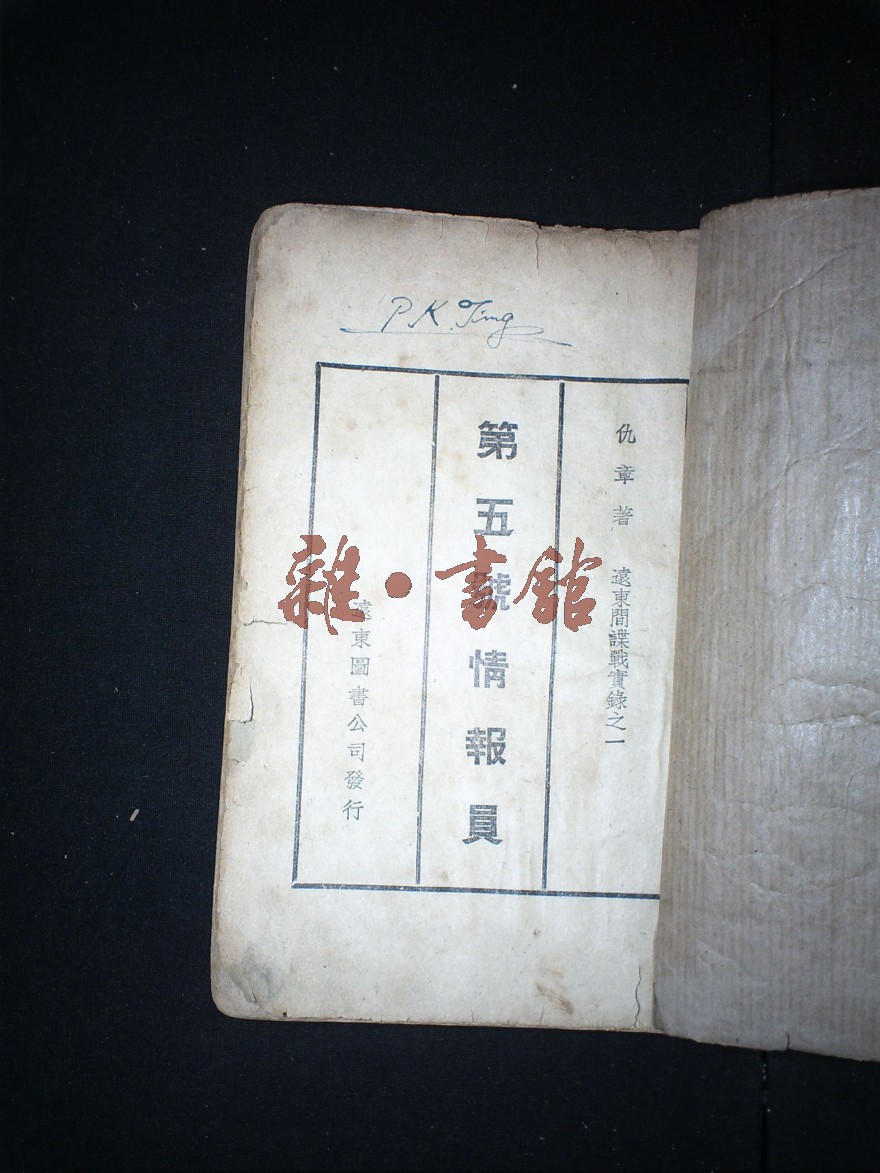 P. K. Ting
仇章著 遠東間諜戰實錄之一
第五號情報員
遠東圖書公司發行
雜·書館